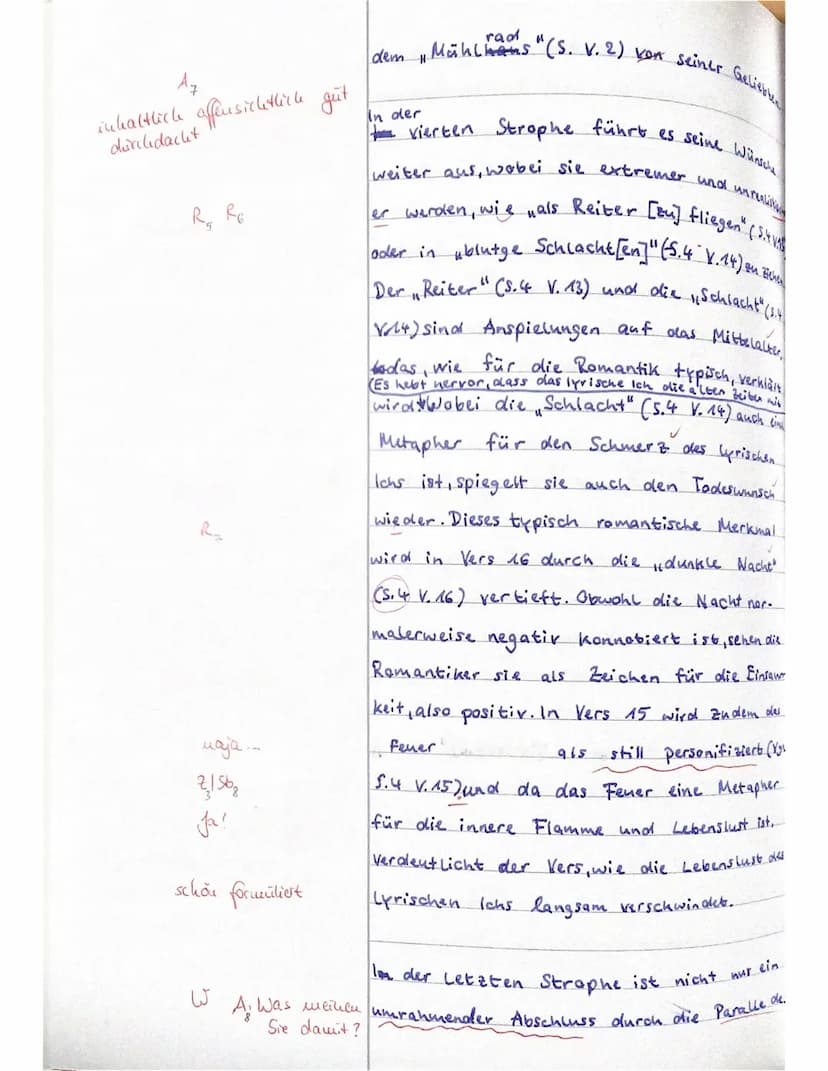 dem „Mühlhans rad" (S. V. 2) von seiner Geliebten
A7
inhaltlich offensichtlich gut
durchdacht
In der
vierten Strophe führt es seine Wünsche
weiter aus, wobei sie extremer und unrealistisch
R5 R6
er werden, wie „als Reiter [zu] fliegen" (S.4 V.13
oder in „blutge Schlacht[en]" (S.4 V.14) zu ziehen
Der „Reiter" (S.4 V. 13) und die „Schlacht" (S.4
V.14) sind Anspielungen auf das Mittelalter,
das, wie für die Romantik typisch, verklärt
(Es hebt hervor, dass das lyrische Ich die alten Zeiten mit
wird. Wobei die „Schlacht" (S.4 V. 14) auch eine
Metapher für den Schmerz des lyrischen
Ichs ist, spiegelt sie auch den Todeswunsch
R7
wieder. Dieses typisch romantische Merkmal
wird in Vers 16 durch die „dunkle Nacht"
(S. 4 V. 16) vertieft. Obwohl die Nacht nor-
malerweise negativ konnotiert ist, sehen die
Romantiker sie als Zeichen für die Einsam-
keit, also positiv. In Vers 15 wird zudem das
naja...
Feuer als still personifiziert (Vgl
Z3/Sb8
S.4 V.15) und da das Feuer eine Metapher
Ja!
für die innere Flamme und Lebenslust ist,
verdeutlicht der Vers, wie die Lebenslust des
schön formuliert
Lyrischen Ichs langsam verschwindet.
In der letzten Strophe ist nicht nur ein
W A8 Was meinen
Sie damit?
umrahmender Abschluss durch die Paralle de.